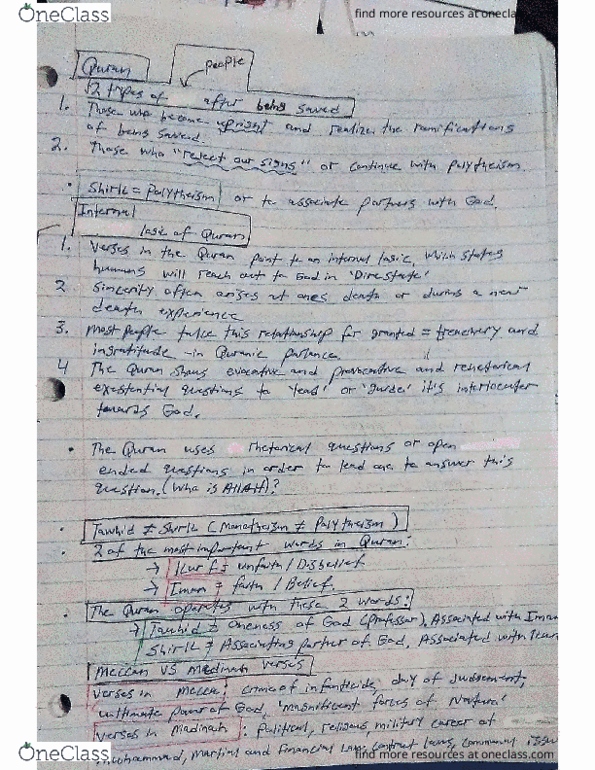 OneClass
find more resources at oneclass
Quran
people
2 types of after being saved
1. Those who become upright and realize the ramifications
of being saved.
2. Those who "reject our signs" or continue with polytheism
• Shirk = Polytheism or to associate partners with God.
Internal
logic of Quran
1. Verses in the Quran point to an internal logic, which states
humans will reach out to God in 'Dire state'
2 Sincerity often arises at ones death or during a near
death experience
3. most people take this relationship for granted = treachery and
ingratitude - in Quranic parlance.
4 The Quran shows evocative and provocative and rehetorical
existential questions to 'lead' or 'guide' it's interlocuter
towards God.
• The Quran uses rhetorical questions or open
ended questions in order to lead one to answer this
question. (Who is Allah)?
• Tawhid ≠ Shirk (Monotheism ≠ Polytheism)
• 2 of the most important words in Quran:
→ Kurf = unfaith / Disbelief
→ Iman = faith / Belief.
• The Quran operates with these 2 words:
→ Tawhid = Oneness of God (professor), Associated with Iman
Shirk = Associating partner of God, Associated with
Meccan VS Madinah verses
Verses in Mecca: crime of infanticide, day of Judgement,
ultimate power of God, 'magnificent forces of Nature'
Verses in Madinah: Political, religious, military career of
Muhammad, Martial and financial Law, contract laws, communal
OneClass
find more resources at oneclass